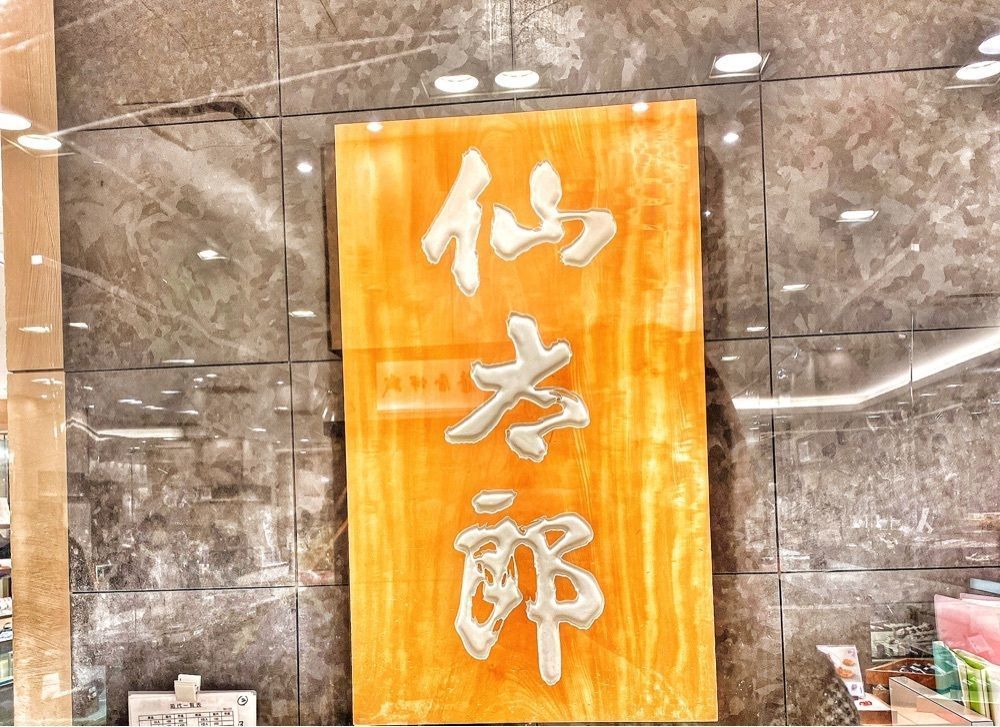 仙太郎